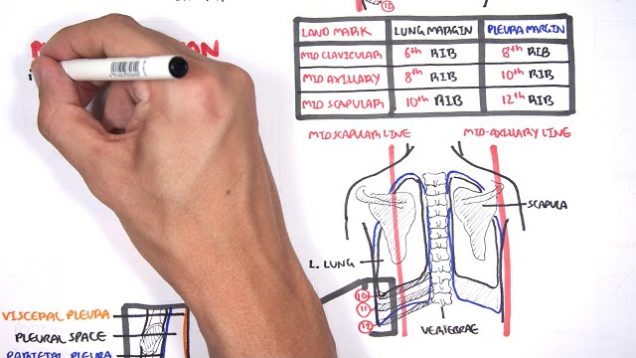 LAND MARK LUNG MARGIN PLEURA MARGIN
MID CLAVICULAR 6th RIB 8th RIB
MID AXILLARY 8th RIB 10th RIB
MID SCAPULAR 10th RIB 12th RIB
MIDSCAPULAR LINE
MID-AXILLARY LING
SCAPULA
L. LUNG
10
11
12
VERTEBRAE
VISCERAL PLEURA
PLEURAL SPACE
PARIETAL PLEURA